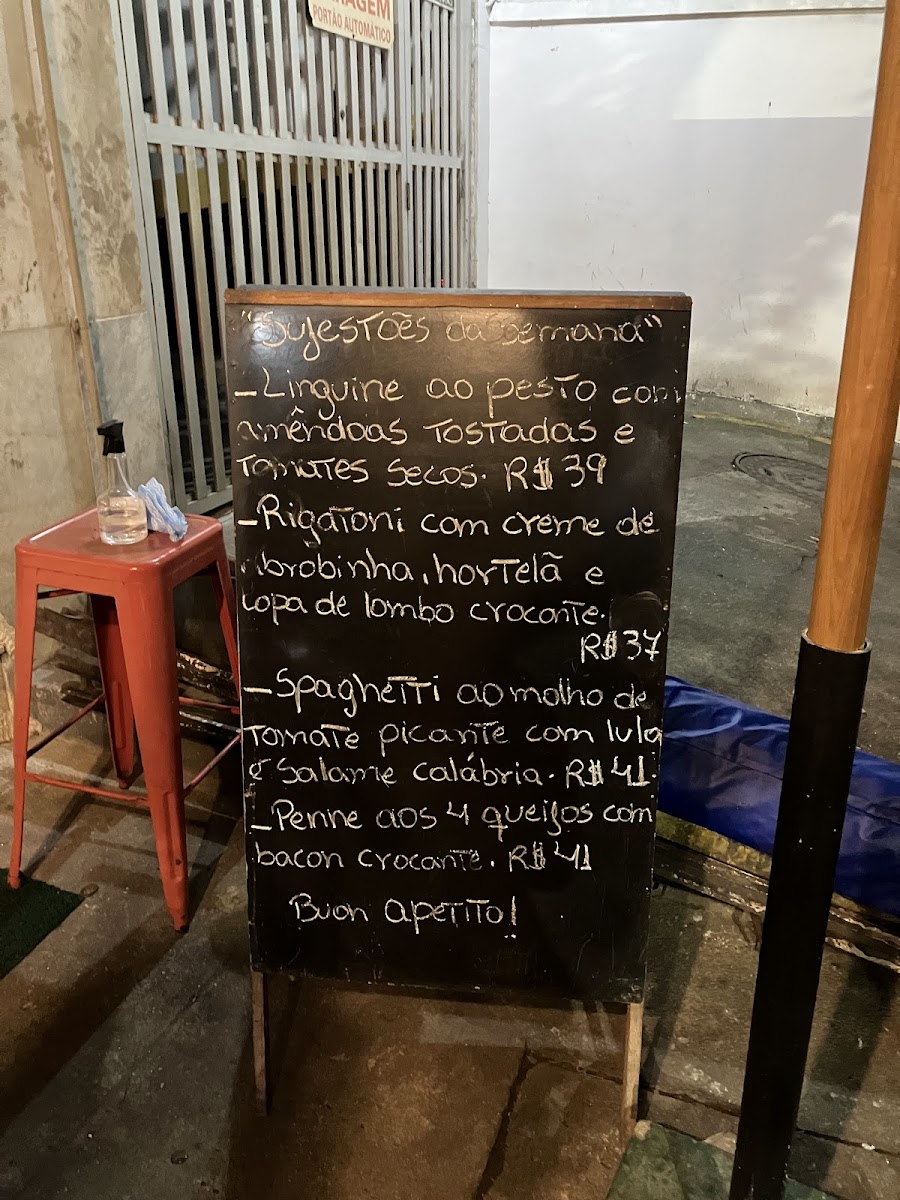 RAGEM
PORTÃO AUTOMÁTICO
"Sujestões da semana"
- Linguine ao pesto com
amêndoas tostadas e
tomates secos. R$ 39
- Rigatoni com creme de
abrobinha, hortelã e
copa de lombo crocante.
R$ 37
- Spaghetti ao molho de
tomate picante com lula
e salame calábria. R$ 41.
- Penne aos 4 queijos com
bacon crocante. R$ 41
Buon apetito!